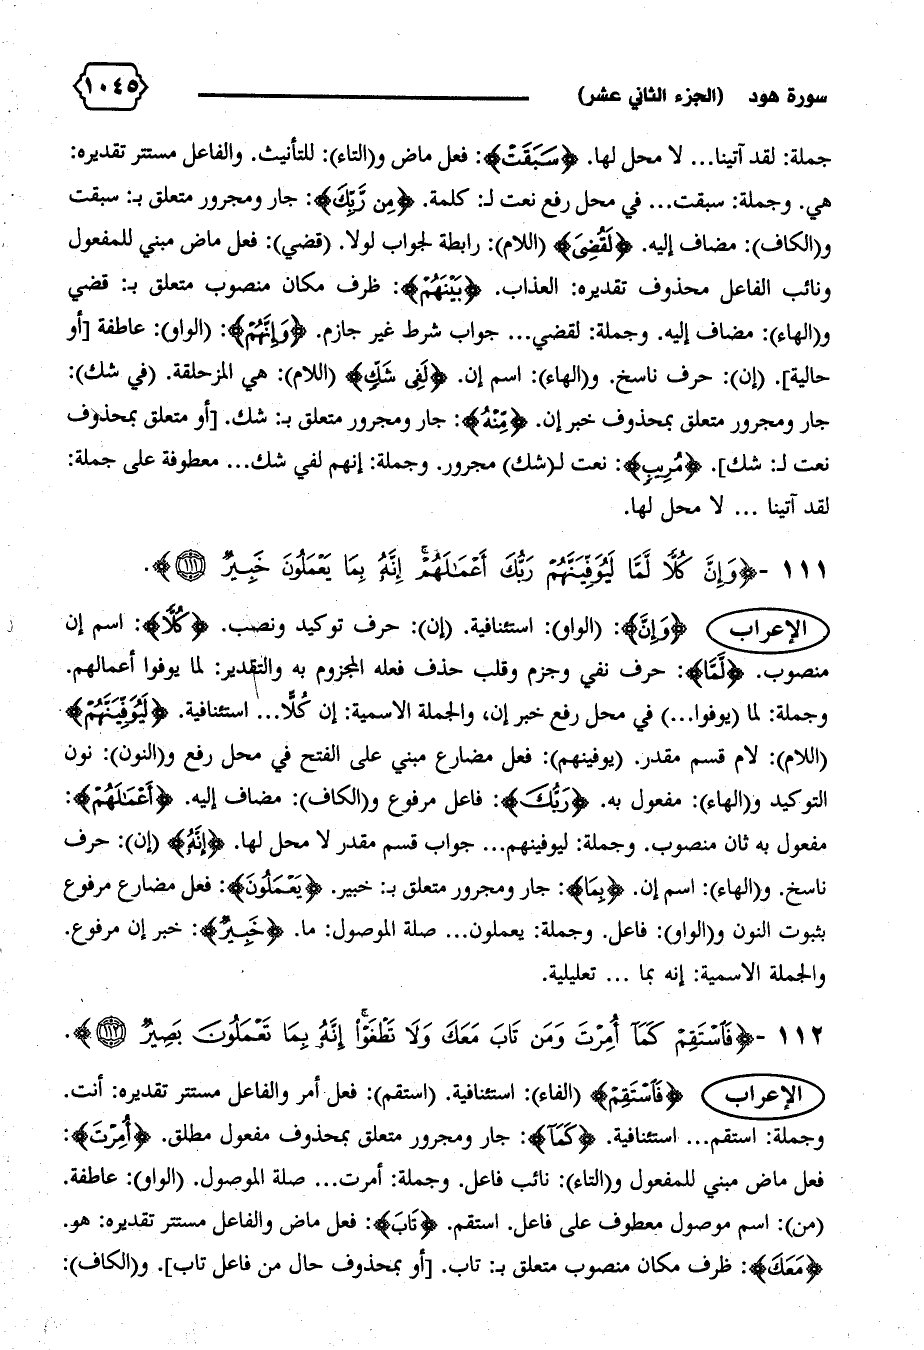 سورة هود (الجزء الثاني عشر) ١٠٤٥
جملة: لقد آتينا... لا محل لها. ﴿سَبَقَتْ﴾: فعل ماض و(التاء): للتأنيث. والفاعل مستتر تقديره:
هي. وجملة: سبقت... في محل رفع نعت لـ: كلمة. ﴿مِن رَّبِّكَ﴾: جار ومجرور متعلق بـ: سبقت
و(الكاف): مضاف إليه. ﴿لَقُضِىَ﴾ (اللام): رابطة لجواب لولا. (قضي): فعل ماض مبني للمفعول
ونائب الفاعل محذوف تقديره: العذاب. ﴿بَيْنَهُمْ﴾: ظرف مكان منصوب متعلق بـ: قضي
و(الهاء): مضاف إليه. وجملة: لقضي... جواب شرط غير جازم. ﴿وَإِنَّهُمْ﴾: (الواو): عاطفة [أو
حالية]. (إن): حرف ناسخ. و(الهاء): اسم إن. ﴿لَفِى شَكٍّ﴾ (اللام): هي المزحلقة. (في شك):
جار ومجرور متعلق بمحذوف خبر إن. ﴿مِّنْهُ﴾: جار ومجرور متعلق بـ: شك. [أو متعلق بمحذوف
نعت لـ: شك]. ﴿مُرِيبٍ﴾: نعت لـ(شك) مجرور. وجملة: إنهم لفي شك... معطوفة على جملة:
لقد آتينا ... لا محل لها.
١١١ -﴿وَإِنَّ كُلًّا لَّمَّا لَيُوَفِّيَنَّهُمْ رَبُّكَ أَعْمَٰلَهُمْ ۚ إِنَّهُۥ بِمَا يَعْمَلُونَ خَبِيرٌ ١١١﴾.
الإعراب ﴿وَإِنَّ﴾: (الواو): استئنافية. (إن): حرف توكيد ونصب. ﴿كُلًّا﴾: اسم إن
منصوب. ﴿لَّمَّا﴾: حرف نفي وجزم وقلب حذف فعله المجزوم به والتقدير: لما يوفوا أعمالهم.
وجملة: لما (يوفوا...) في محل رفع خبر إن، والجملة الاسمية: إن كُلًّا... استئنافية. ﴿لَيُوَفِّيَنَّهُمْ﴾
(اللام): لام قسم مقدر. (يوفينهم): فعل مضارع مبني على الفتح في محل رفع و(النون): نون
التوكيد و(الهاء): مفعول به. ﴿رَبُّكَ﴾: فاعل مرفوع و(الكاف): مضاف إليه. ﴿أَعْمَٰلَهُمْ﴾:
مفعول به ثان منصوب. وجملة: ليوفينهم... جواب قسم مقدر لا محل لها. ﴿إِنَّهُۥ﴾ (إن): حرف
ناسخ. و(الهاء): اسم إن. ﴿بِمَا﴾: جار ومجرور متعلق بـ: خبير. ﴿يَعْمَلُونَ﴾: فعل مضارع مرفوع
بثبوت النون و(الواو): فاعل. وجملة: يعملون... صلة الموصول: ما. ﴿خَبِيرٌ﴾: خبر إن مرفوع.
والجملة الاسمية: إنه بما ... تعليلية.
١١٢ -﴿فَٱسْتَقِمْ كَمَآ أُمِرْتَ وَمَن تَابَ مَعَكَ وَلَا تَطْغَوْا۟ ۚ إِنَّهُۥ بِمَا تَعْمَلُونَ بَصِيرٌ ١١٢﴾.
الإعراب ﴿فَٱسْتَقِمْ﴾ (الفاء): استئنافية. (استقم): فعل أمر والفاعل مستتر تقديره: أنت.
وجملة: استقم... استئنافية. ﴿كَمَآ﴾: جار ومجرور متعلق بمحذوف مفعول مطلق. ﴿أُمِرْتَ﴾:
فعل ماض مبني للمفعول و(التاء): نائب فاعل. وجملة: أمرت... صلة الموصول. (الواو): عاطفة.
(من): اسم موصول معطوف على فاعل. استقم. ﴿تَابَ﴾: فعل ماض والفاعل مستتر تقديره: هو.
﴿مَعَكَ﴾: ظرف مكان منصوب متعلق بـ: تاب. [أو بمحذوف حال من فاعل تاب]. و(الكاف):